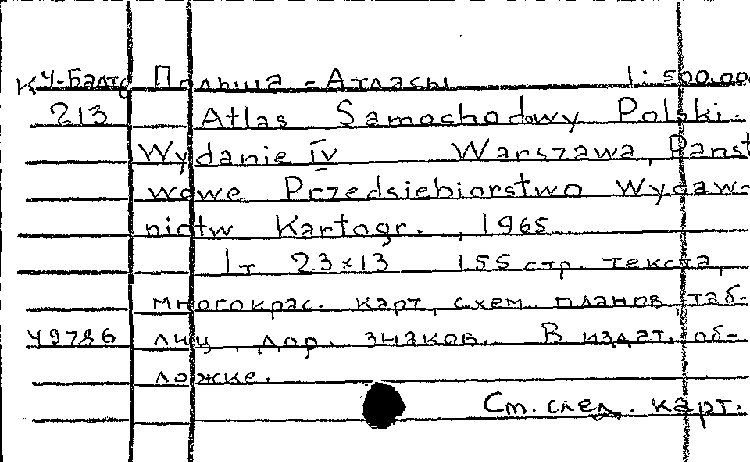 К4-Балто Польша - Атласы 1:500.00
213 Atlas Samochodowy Polski.
Wydanie IV Warszawa, Państ
wowe Przedsiębiorstwo Wydaw-
nictw Kartogr., 1965
1т 23x13 155 стр. текста,
многокрас. карт, схем, планов, таб-
49786 лиц дор. знаков. В издат. об-
ложке.
См. след. карт.